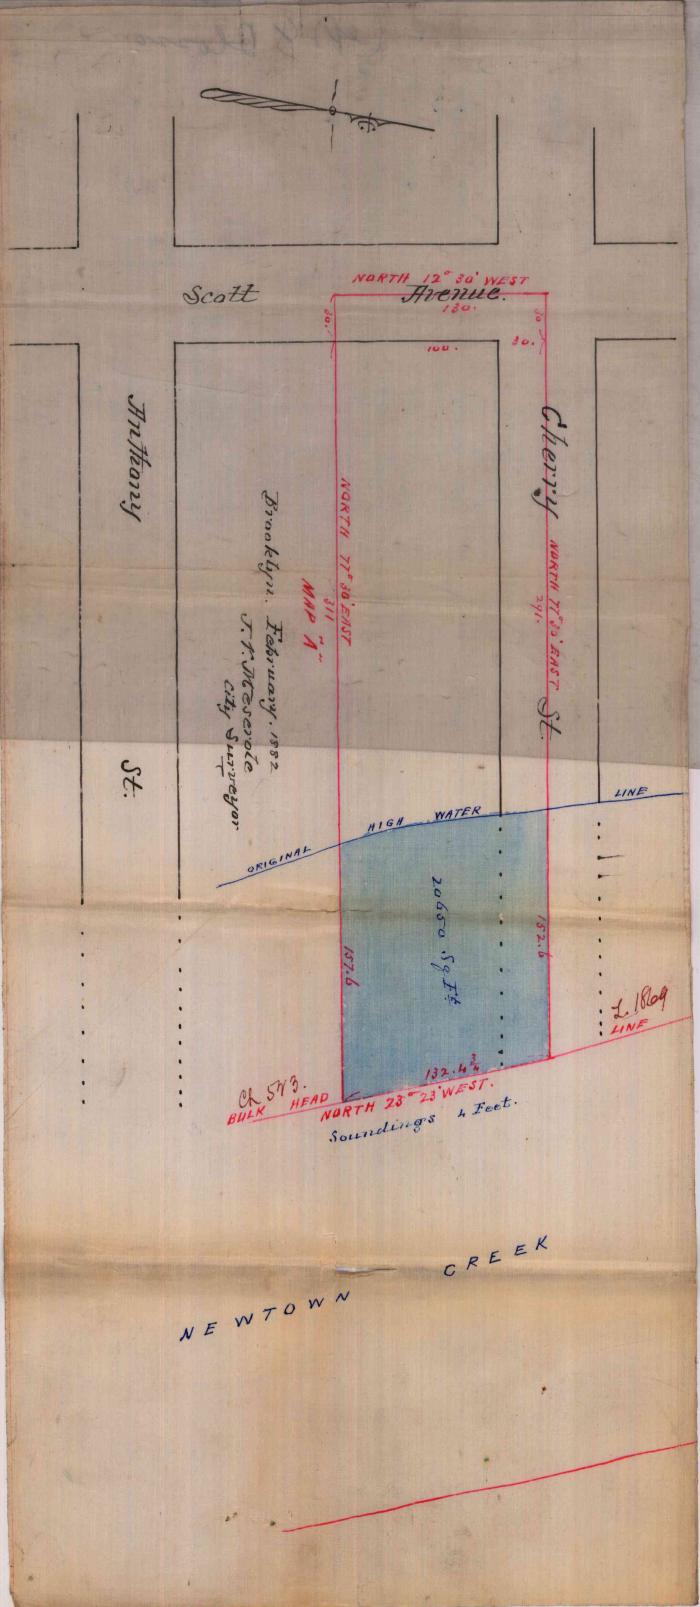 NORTH 12° 30' WEST
Scott Avenue.
130.
30.
30
100.
30.
Anthony St.
Cherry St.
NORTH 77° 30' EAST
311
MAP "A"
NORTH 77° 30' EAST
291.
Brooklyn. February. 1882
J. V. Meserole
City Surveyor
ORIGINAL HIGH WATER LINE
20650 Sq Ft.
157.6
152.6
L. 1869
132.4 3/4
Ch 573.
BULK HEAD LINE
NORTH 23° 23' WEST.
Soundings 4 Feet.
NEWTOWN CREEK